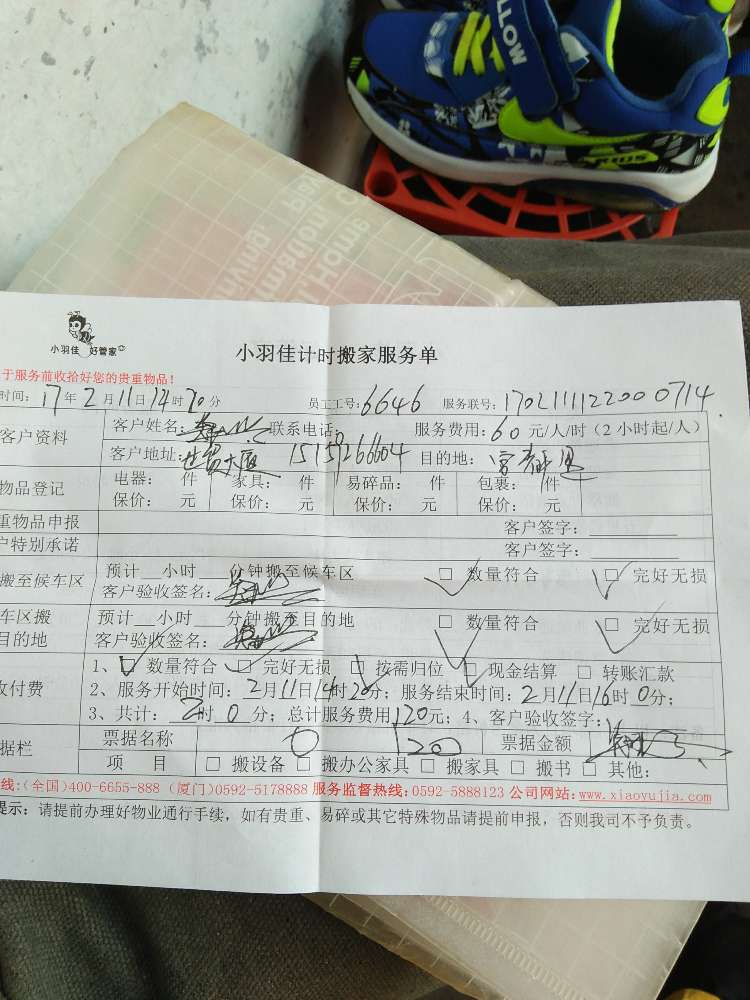 LLOW
小羽佳 好管家
小羽佳计时搬家服务单
于服务前收拾好您的贵重物品!
时间: 17年2月11日14时20分 员工工号: 6646 服务联号: 170211112200 0714
客户资料 客户姓名: 联系电话: 服务费用: 60元/人/时(2小时起/人)
客户地址: 世贸大厦 15159266604 目的地:
物品登记 电器: 件 家具: 件 易碎品: 件 包裹: 件
保价: 元 保价: 元 保价: 元 保价: 元
重物品申报 客户签字:
户特别承诺 客户签字:
搬至候车区 预计 小时 分钟搬至候车区 □ 数量符合 □ 完好无损
客户验收签名:
车区搬 预计 小时 分钟搬至目的地 □ 数量符合 □ 完好无损
目的地 客户验收签名:
收付费 1、□ 数量符合 □ 完好无损 □ 按需归位 □ 现金结算 □ 转账汇款
2、服务开始时间: 2月11日14时20分; 服务结束时间: 2月11日16时0分;
3、共计: 2时0分; 总计服务费用120元; 4、客户验收签字:
据栏 票据名称 0 120 票据金额
项 目 □ 搬设备 □ 搬办公家具 □ 搬家具 □ 搬书 □ 其他:
线:(全国)400-6655-888 (厦门)0592-5178888 服务监督热线: 0592-5888123 公司网站: www.xiaoyujia.com
提示: 请提前办理好物业通行手续, 如有贵重、易碎或其它特殊物品请提前申报, 否则我司不予负责。